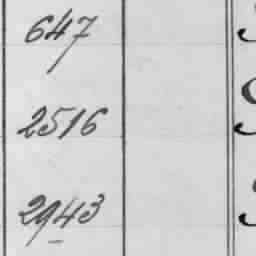 647
2516
2943